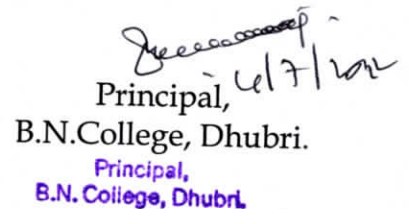 4/7/2022
Principal,
B.N.College, Dhubri.
Principal,
B.N. College, Dhubri.